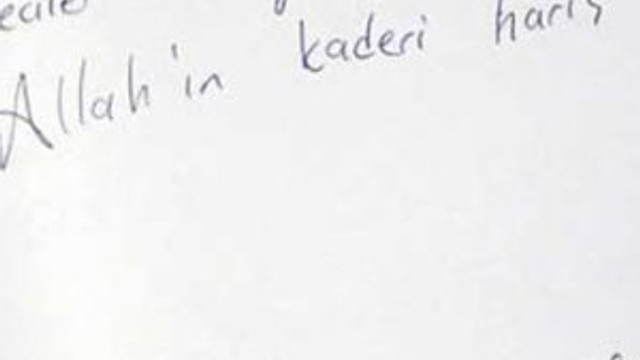 Allah'ın kaderi hariç